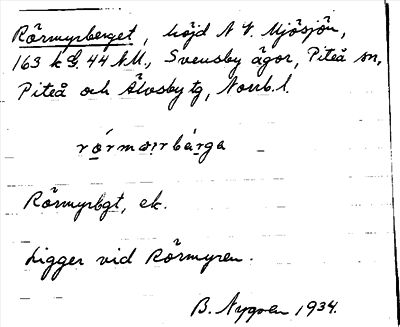 Rörmyrberget, höjd N V. Mjösjön,
163 k G. 44 NM., Svensby ägor, Piteå sn,
Piteå och Älvsby tg, Norrb. l.
Rörmyrbgt, ek.
Ligger vid Rörmyren.
B. Nygren 1934.